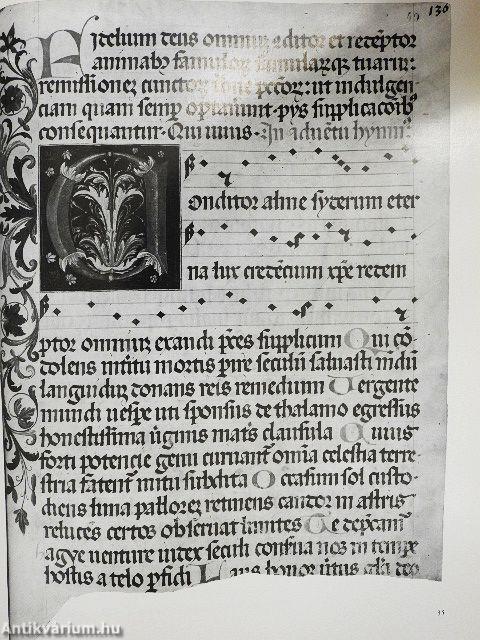 136
Fidelium deus omniuȝ conditor et redẽptor
animabꝰ famuloꝝ famularꝙ tuaruȝ
remissionez cunctoꝝ tribue pcc̄oꝝ: ut indulgen
ciam quam semp̲ optauerunt. pijs supplicacōibꝰ
consequantur. Qui uiuis. In aduẽtu hymnꝰ
Conditor alme syderum eter
na lux credencium xp̄e redem
ptor omniuȝ exaudi p̄ces supplicum Qui cõ-
dolens interitu mortis perire seculũ saluasti mũdũ
languiduȝ donans reis remedium Uergente
mundi uesp̲e uti sponsus de thalamo egressus
honestissima uirginis matris clausula Cuius
forti potencie genu curuant̃ omia celestia terre-
stria fatent̃ nutu subdita Occasum sol custo-
diens luna palloreȝ retinens candor in astris
relucẽs certos obseruat limites Te dep̱cam̃
agye uenture iudex seculi conserua nos in tempe
hostis a telo p̱fidi Laus honor uirtus glia deo
35
Antikvárium.hu